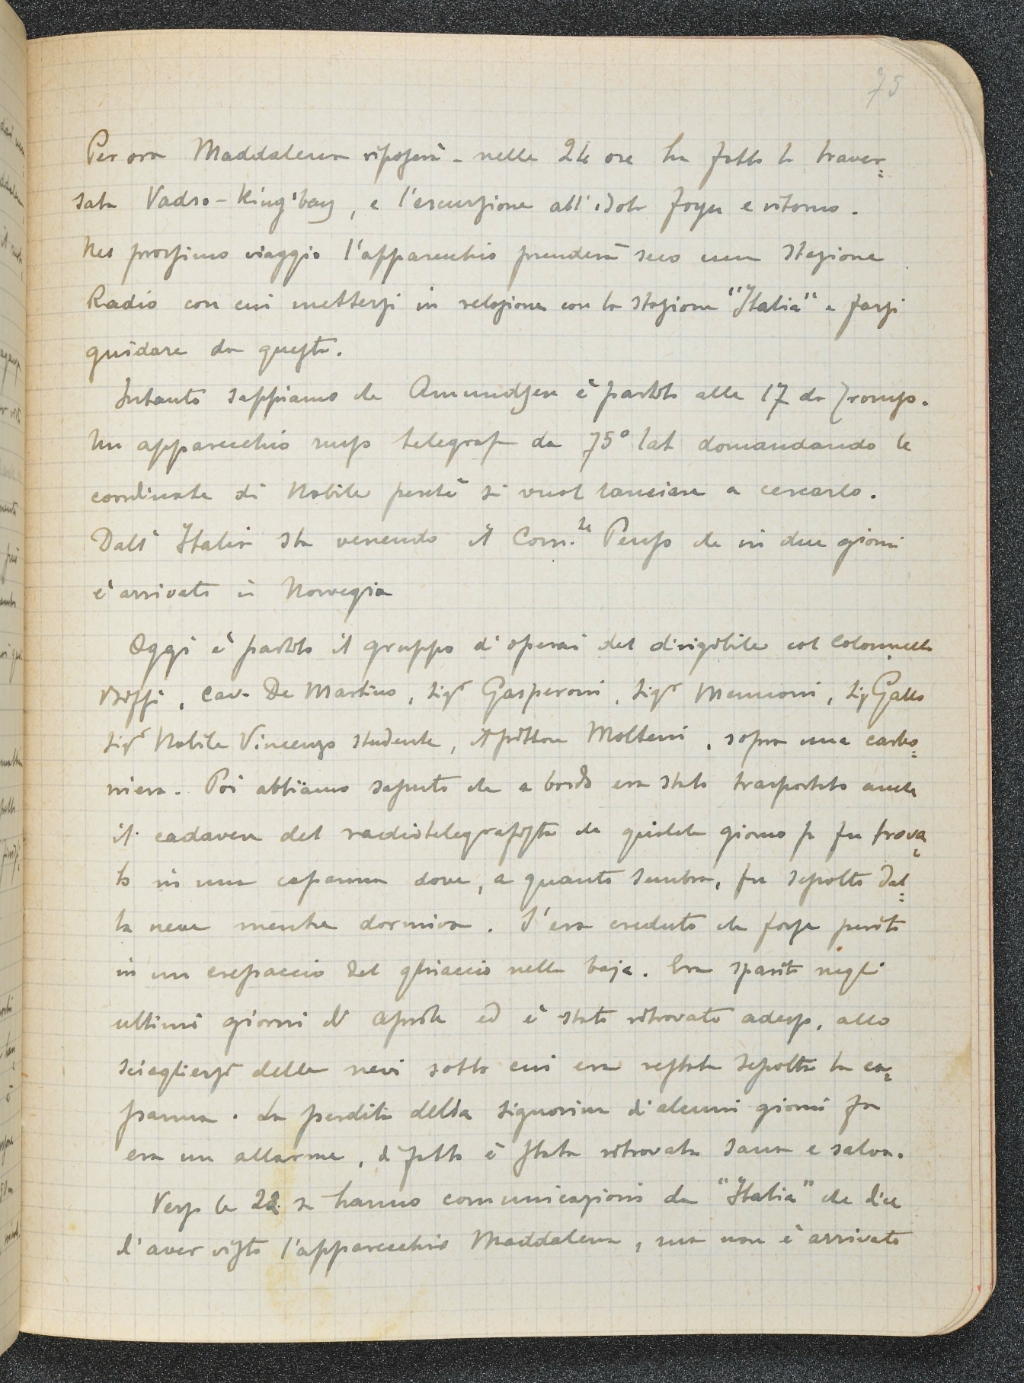 75
Per ora Maddalena riposerà - nelle 24 ore ha fatto la traver=
sata Vadso - King'bay, e l'escursione all'isola Foyn e ritorno.
Nel prossimo viaggio l'apparecchio prenderà seco una stazione
Radio con cui mettersi in relazione con la stazione "Italia" e farsi
guidare da questa.
Intanto sappiamo che Amundsen è partito alle 17 da Tromso.
Un apparecchio russo telegrafa da 75° lat domandando le
coordinate di Nobile perché si vuol lanciare a cercarlo.
Dall' Italia sta venendo il Com.te Penzo che in due giorni
è arrivato in Norvegia
Oggi è partito il gruppo di operai del dirigibile col Colonnello
Biffi, Cav. De Martino, Sigr Gasperoni, Sigr Mennoni, Sig Gallo
Sigr Nobile Vincenzo studente, il pittore Molteni, sopra una carbo=
niera. Poi abbiamo saputo che a bordo era stato trasportato anche
il cadavere del radiotelegrafista che qualche giorno fa fu trova=
to in una capanna dove, a quanto sembra, fu sepolto dal=
la neve mentre dormiva. S'era creduto che forse perito
in un crepaccio del ghiaccio nella baja. Era sparito negli
ultimi giorni di Aprile ed è stato ritrovato adesso, allo
sciogliersi delle nevi sotto cui era restata sepolta la ca=
panna. La perdita della signorina d'alcuni giorni fa
era un allarme, di fatto è stata ritrovata sana e salva.
Verso le 22 si hanno comunicazioni da "Italia" che dice
d'aver visto l'apparecchio Maddalena, ma non è arrivato